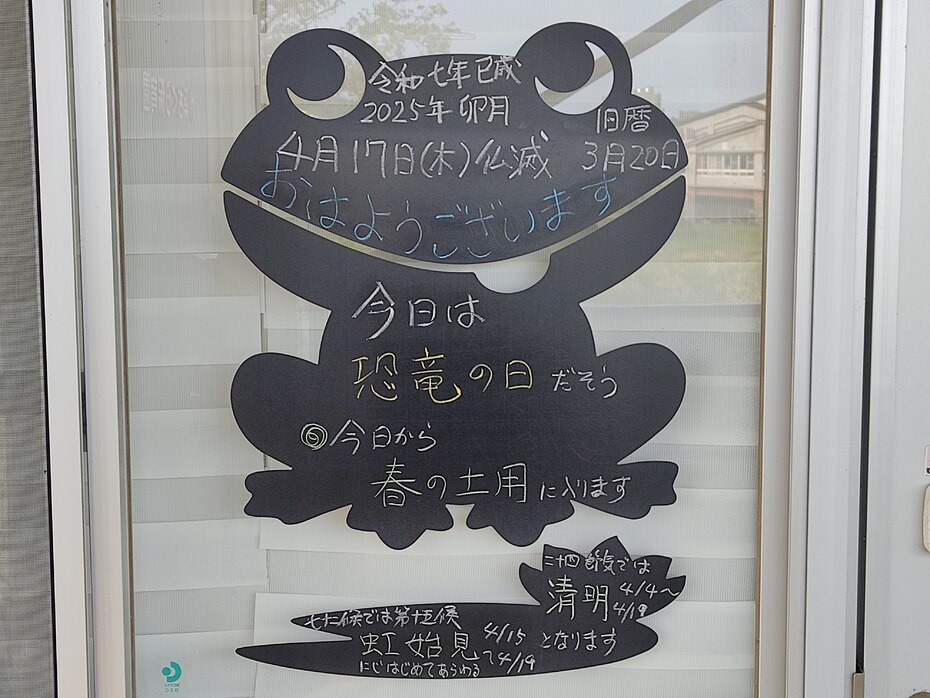 令和七年己成
2025年 卯月
旧暦
4月17日(木)仏滅 3月20日
おはようございます
今日は
恐竜の日だそう
◎今日から
春の土用に入ります
二十四節気では
清明 4/4〜4/19
七十二候では第十五候
虹始見 4/15〜4/19 となります
にじはじめてあらわる